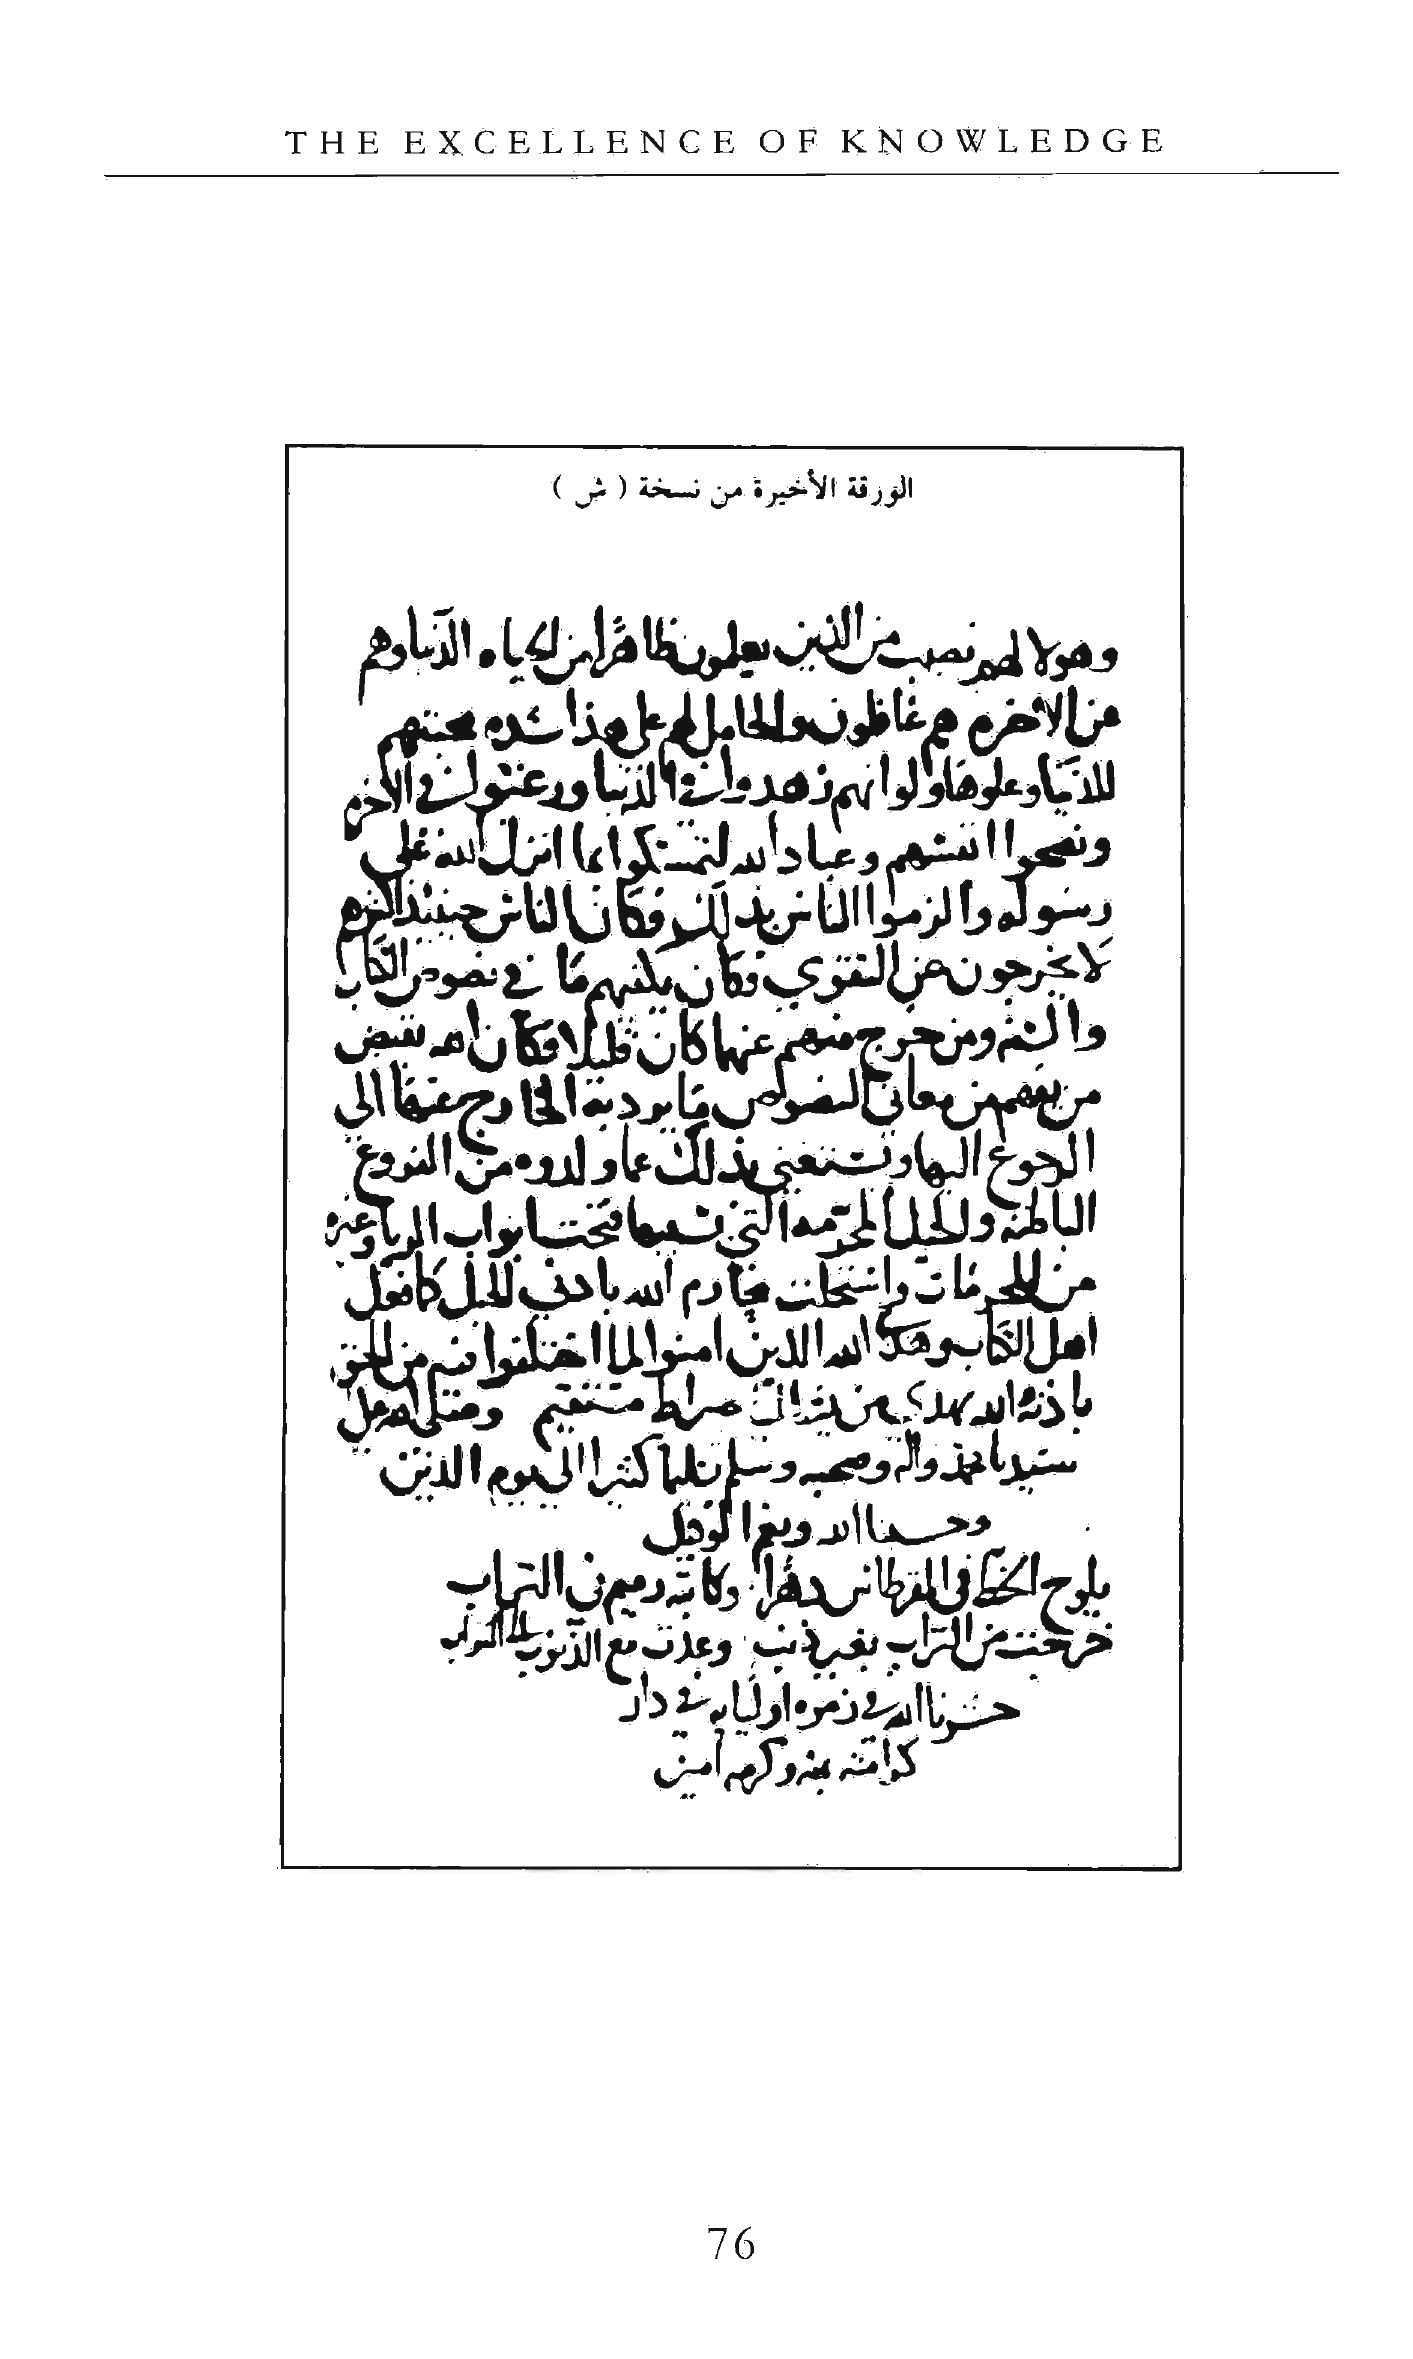 THE EXCELLENCE OF KNOWLEDGE
الورقة الأخيرة من نسخة ( ش )
وهولا لهم نصيب من الذين يعلمون ظاهرا من الحياه الدنيا وهم
عن الاخره هم غافلون والحامل لهم على هذا شده محبتهم
للدنيا وعلوها ولو انهم زهدوا في الدنيا ورغبوا في الاخره
ونصحوا انفسهم وعباد الله لتمسكوا بما انزل الله على
رسوله والزموا الناس بذلك فكان الناس حينئذ اكثرهم
لا يخرجون عن التقوى فكان يكفيهم ما في نصوص الكتاب
والسنه ومن خرج منهم عنها كان قليلا فكان الله يقيض
من يفهم من معاني النصوص ما يرد به الخارج عنها الى
الرجوع اليها ويستغني بذلك عما ولدوه من الفروع
الباطنه والحيل المحرمه التي بسببها فتحت ابواب الربا وغيره
من المحرمات واستحلت محارم الله بادنى الحيل كما فعل
اهل الكتاب وهدى الله الذين امنوا لما اختلفوا فيه من الحق
باذنه والله يهدي من يشا الى صراط مستقيم وصلى الله على
سيدنا محمد واله وصحبه وسلم تسليما كثيرا الى يوم الدين
وحسبنا الله ونعم الوكيل
يلوح الخط في القرطاس دهرا وكاتبه رميم في التراب
خرجت من التراب بغير ذنب وعدت مع الذنوب الى التراب
حشرنا الله في زمره اوليايه في دار
كرامته بمنه وكرمه امين
76